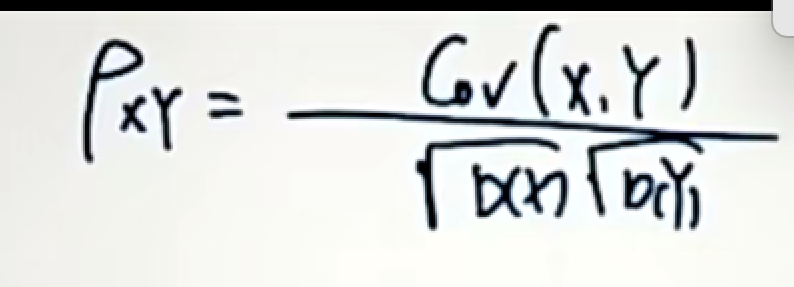 ρ_XY = Cov(X,Y) / √D(X) √D(Y)